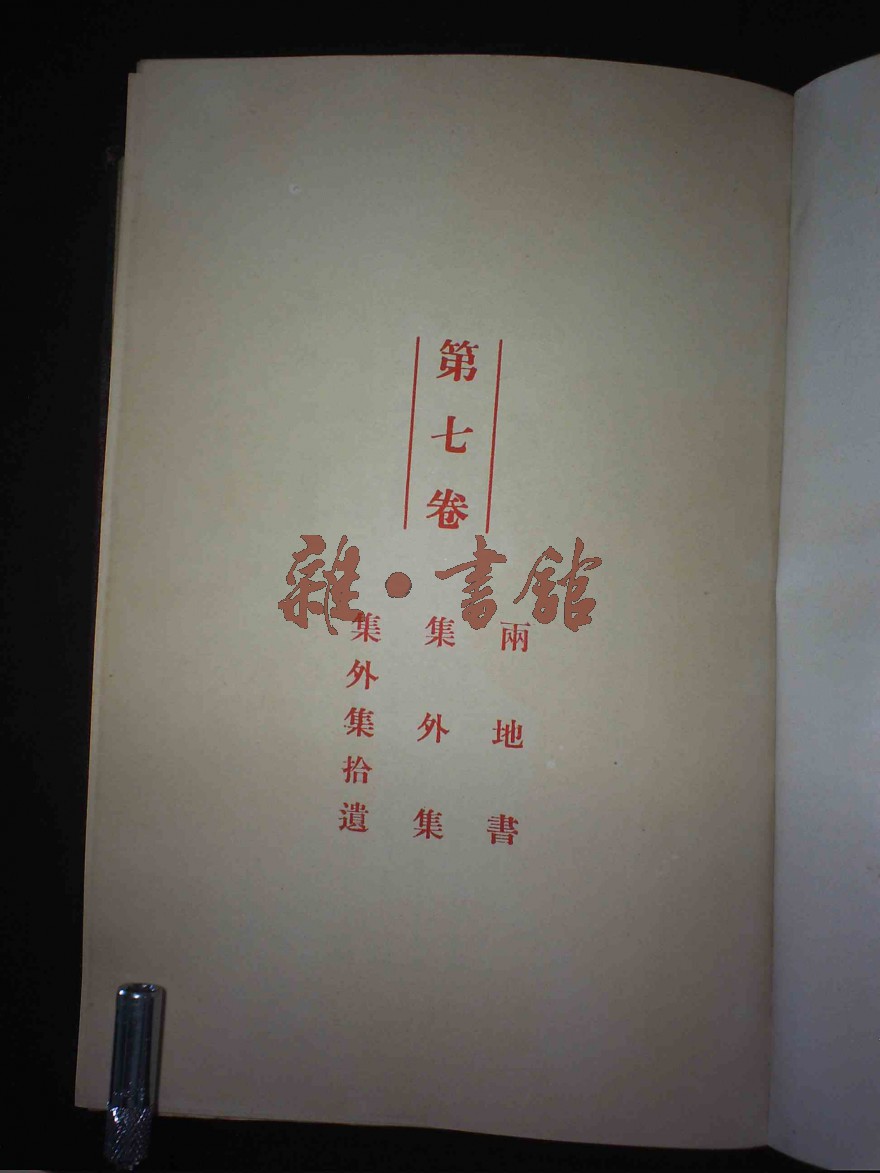 第七卷
兩地書
集外集
集外集拾遺
雜·書館